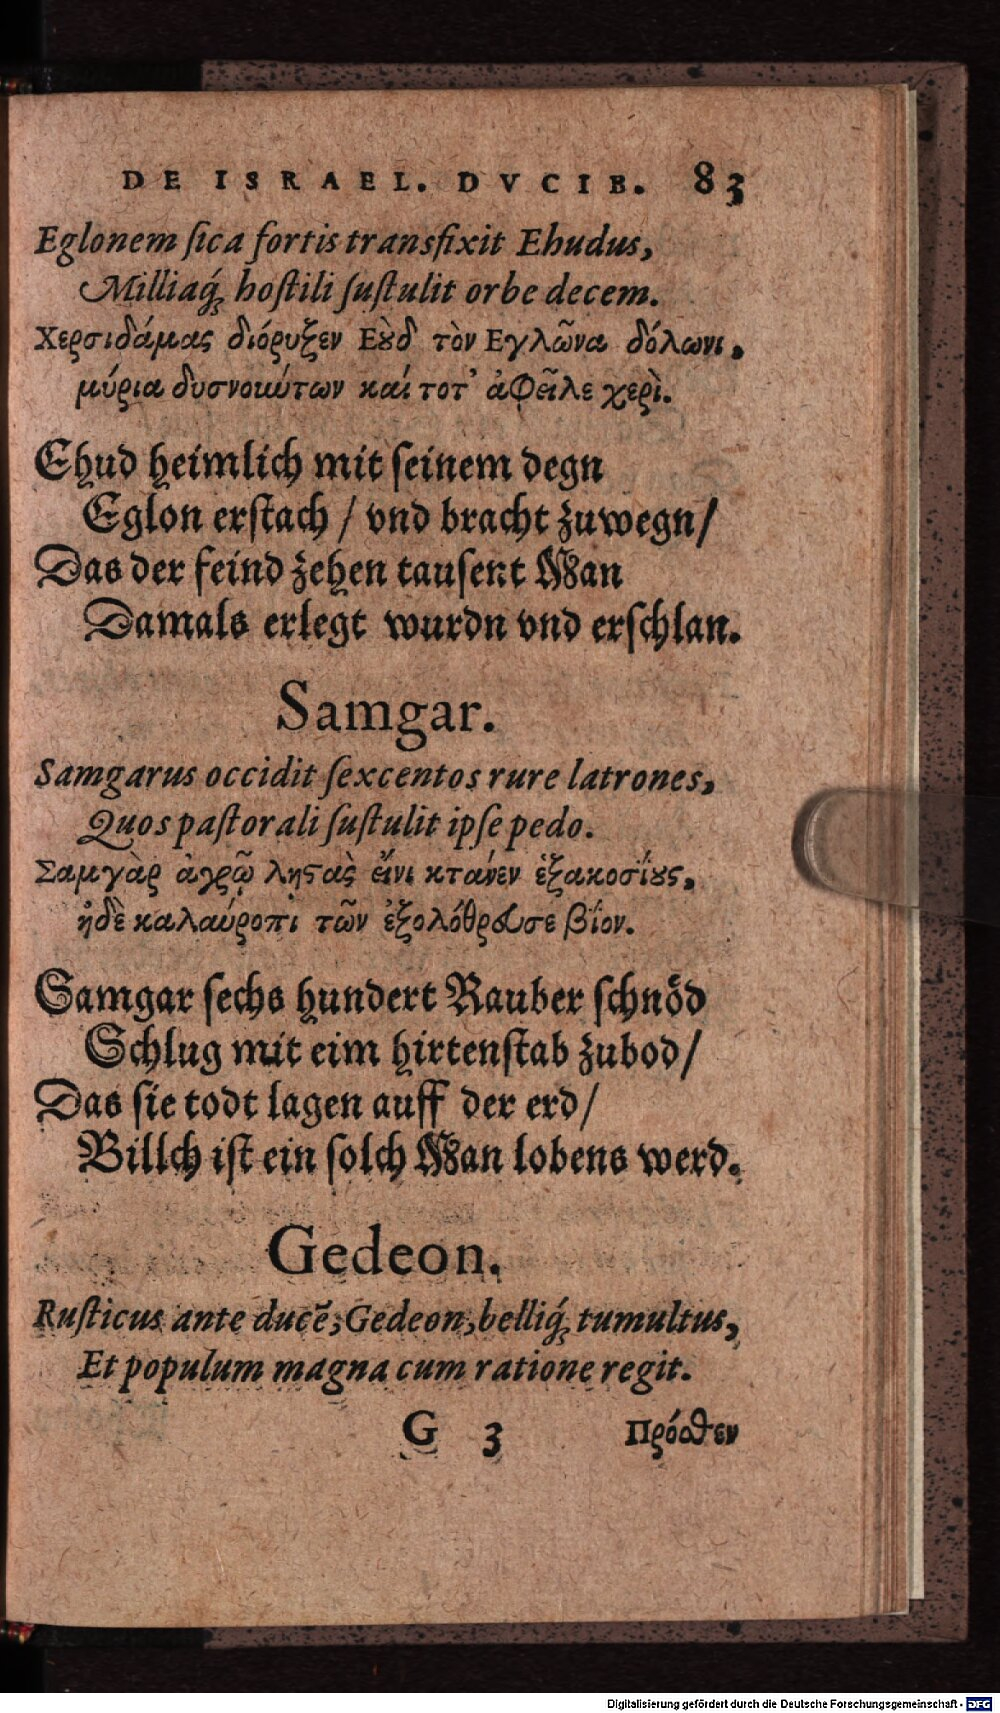 DE ISRAEL. DVCIB. 83
Eglonem ſica fortis transfixit Ehudus,
Milliaq́; hoſtili ſuſtulit orbe decem.
Χερσιδάμας διόρυξεν Εȣ̀δ τὸν Εγλῶνα δόλωνι,
μύρια δυσνοιώτων καί τοτ' ἀφεῖλε χερὶ.
Ehud heimlich mit ſeinem degn
Eglon erſtach / vnd bracht zuwegn/
Das der feind zehen tauſent Man
Damals erlegt wurdn vnd erſchlan.
Samgar.
Samgarus occidit ſexcentos rure latrones,
Quos paſtorali ſuſtulit ipſe pedo.
Σαμγὰρ ἀγρῷ ληϛὰς εἴνι κτάνεν ἑξακοσίȣς,
ἠδὲ καλαύροπι τῶν ἐξολόθρευσε βίον.
Samgar ſechs hundert Rauber ſchnöd
Schlug mit eim hirtenſtab zubod/
Das ſie todt lagen auff der erd/
Billch iſt ein ſolch Man lobens werd.
Gedeon.
Ruſticus ante ducē, Gedeon, belliq́; tumultus,
Et populum magna cum ratione regit.
G 3 Πρόσθεν
Digitalisierung gefördert durch die Deutsche Forschungsgemeinschaft - DFG